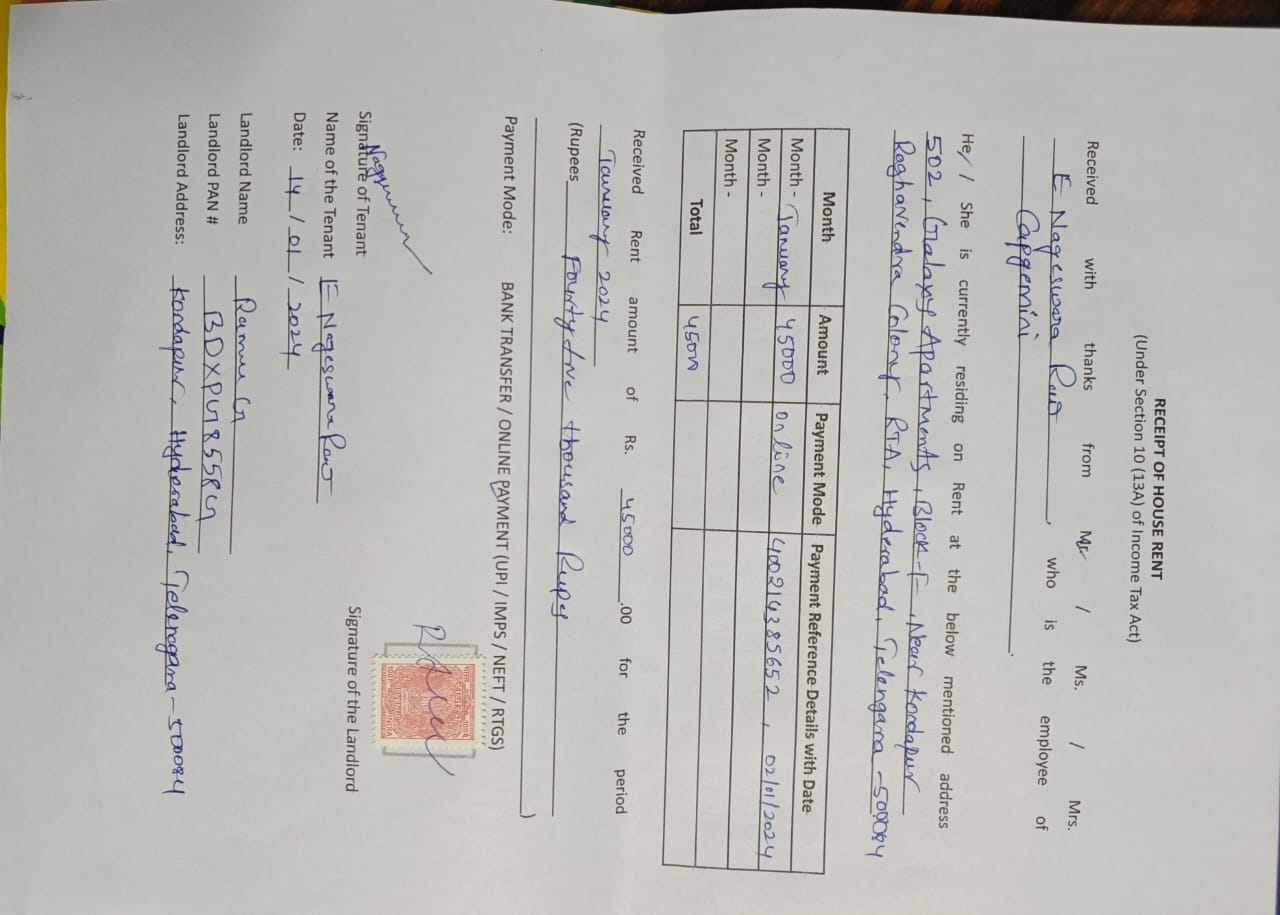 RECEIPT OF HOUSE RENT
(Under Section 10 (13A) of Income Tax Act)
Received with thanks from Mr. / Ms. / Mrs.
E Nageswara Rao, who is the employee of
Capgemini.
He / She is currently residing on Rent at the below mentioned address
502, Galaxy Apartments, Block-F, Near Kondapur
Raghavendra Colony, RTA, Hyderabad, Telangana -500084
Month Amount Payment Mode Payment Reference Details with Date
Month - January 45000 online 400214385652, 02/01/2024
Month -
Month -
Total 45000
Received Rent amount of Rs. 45000.00 for the period
January 2024
(Rupees Fourty five thousand
)
Payment Mode: BANK TRANSFER / ONLINE PAYMENT (UPI / IMPS / NEFT / RTGS)
REVENUE
INDIA
Signature of Tenant
Signature of the Landlord
Name of the Tenant E Nageswara Rao
Date: 14/01/2024
Landlord Name Ramu G
Landlord PAN # BDXPG8558G
Landlord Address: Kondapur, Hyderabad, Telangana-500084